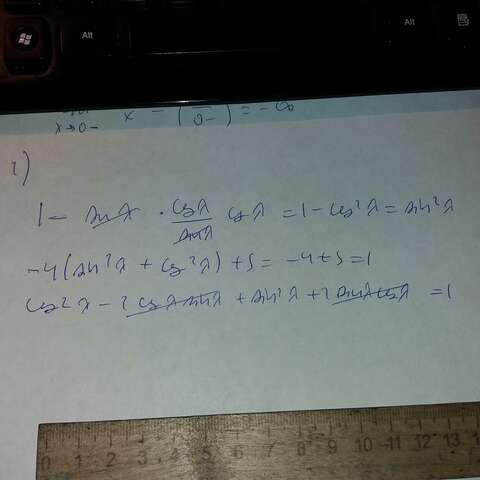 Alt Alt
x→0- x - ( / 0- ) = -∞
1)
1 - sin α · cos α / sin α cos α = 1 - cos² α = sin² α
-4(sin² α + cos² α) + 5 = -4+5 = 1
cos² α - 2 cos α sin α + sin² α + 2 sin α cos α = 1
0 1 2 3 4 5 6 7 8 9 10 11 12 13